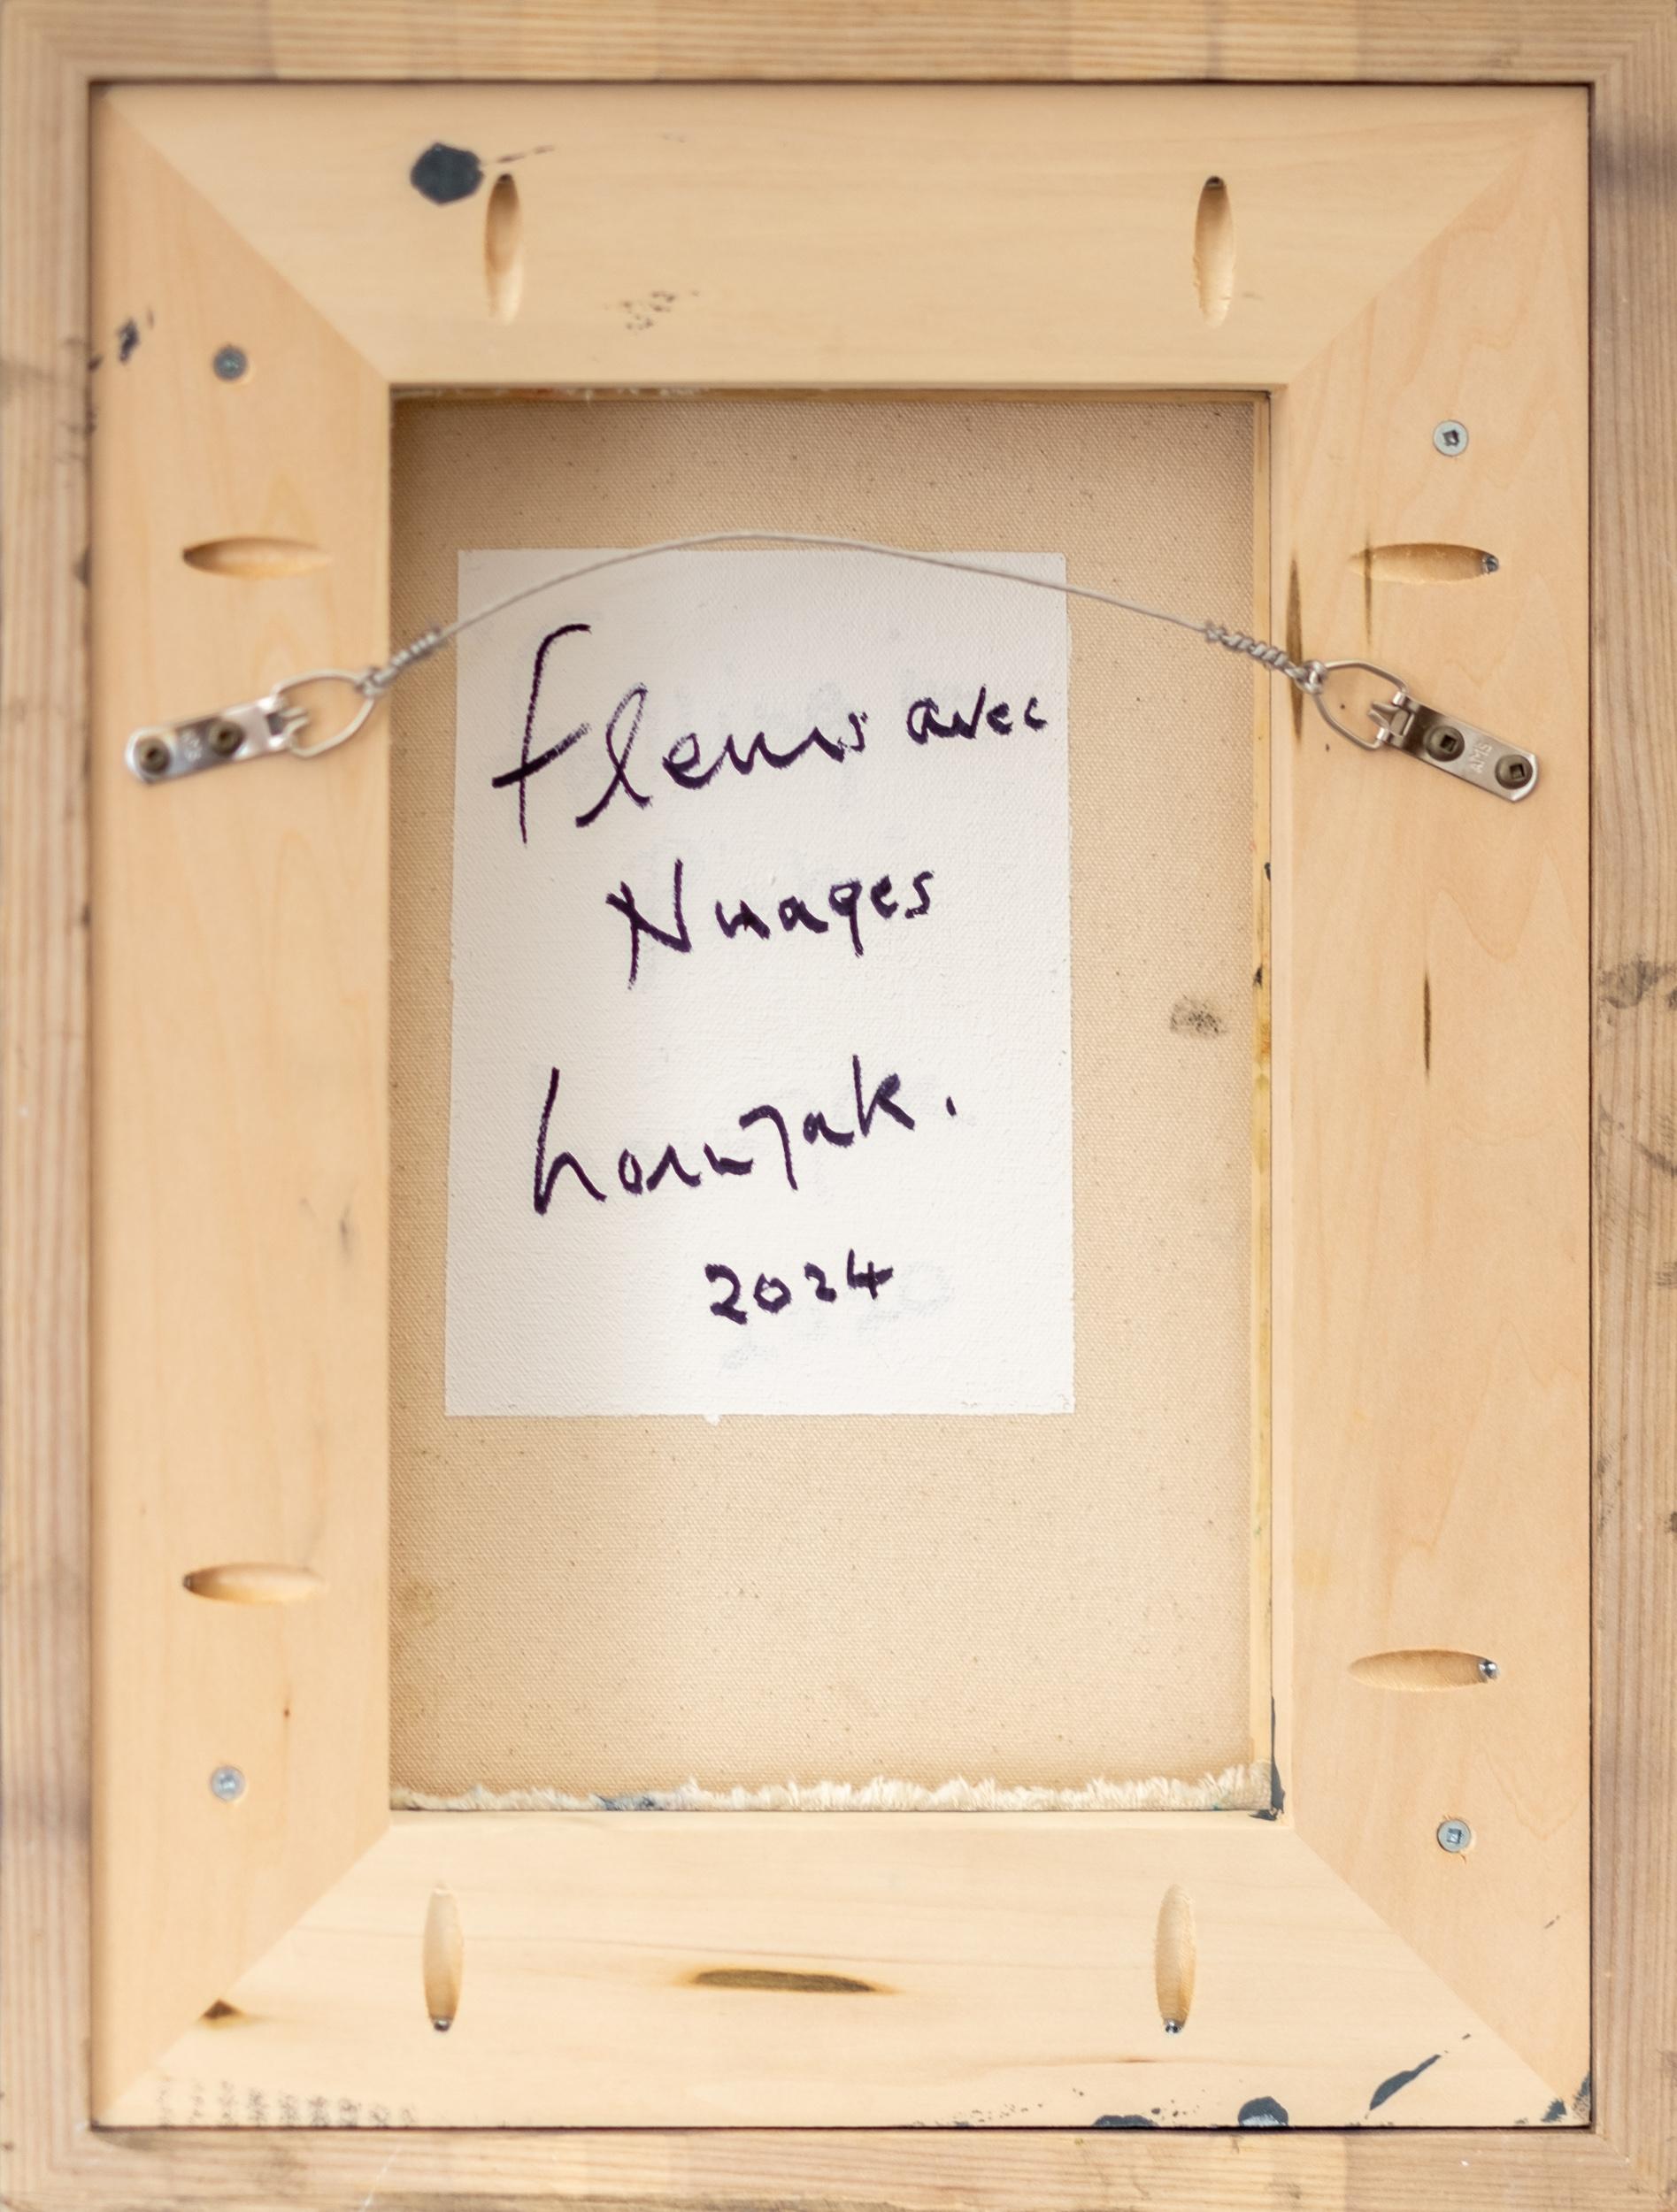 Fleurs avec
Nuages
hornzak.
2024
AMS